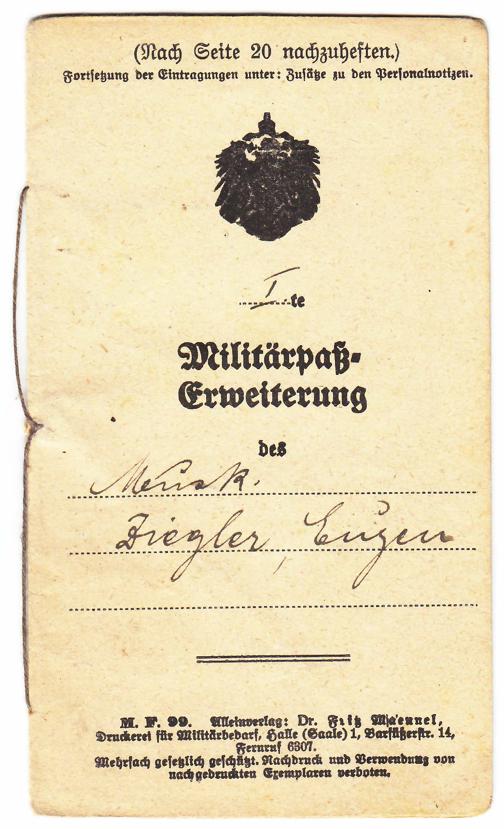 (Nach Seite 20 nachzuheften.)
Fortsetzung der Eintragungen unter: Zusätze zu den Personalnotizen.
I te
Militärpaß-
Erweiterung
des
Musk.
Ziegler, Eugen
M. F. 99. Alleinverlag: Dr. Fritz Maennel,
Druckerei für Militärbedarf, Halle (Saale) 1, Barfüßerstr. 14,
Fernruf 6307.
Mehrfach gesetzlich geschützt. Nachdruck und Verwendung von
nachgedruckten Exemplaren verboten.